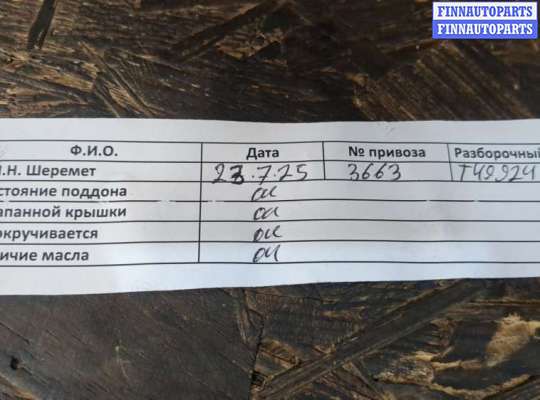 FINNAUTOPARTS
FINNAUTOPARTS
Ф.И.О. Дата № привоза Разборочный
.Н. Шеремет 23.7.25 3663 T49924
стояние поддона ок
апанной крышки ок
окручивается ок
ичие масла ок